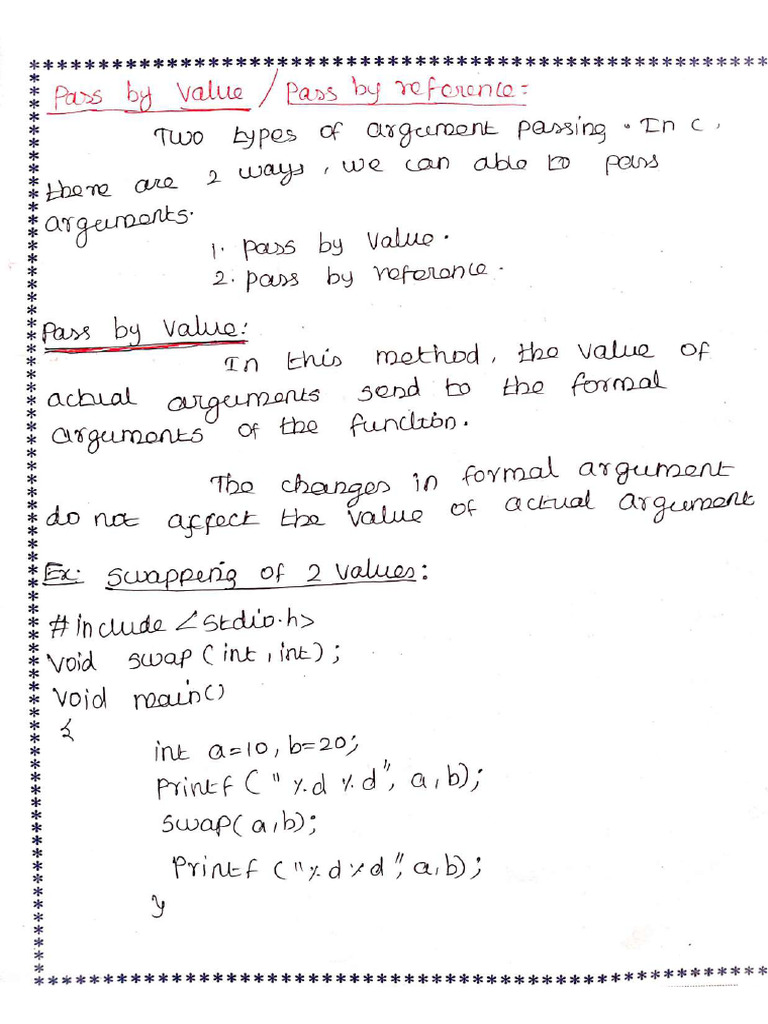 Pass by Value / Pass by reference:
Two types of argument passing. In C,
there are 2 ways, we can able to pass
arguments.
1. Pass by Value.
2. Pass by reference.
Pass by Value:
In this method, the value of
actual arguments send to the formal
arguments of the function.
The changes in formal argument
do not affect the value of actual argument
Ex: Swapping of 2 values:
#include <stdio.h>
Void swap (int, int);
Void main()
{
int a=10, b=20;
Printf ("%d %d", a, b);
Swap(a,b);
Printf ("%d %d", a, b);
}